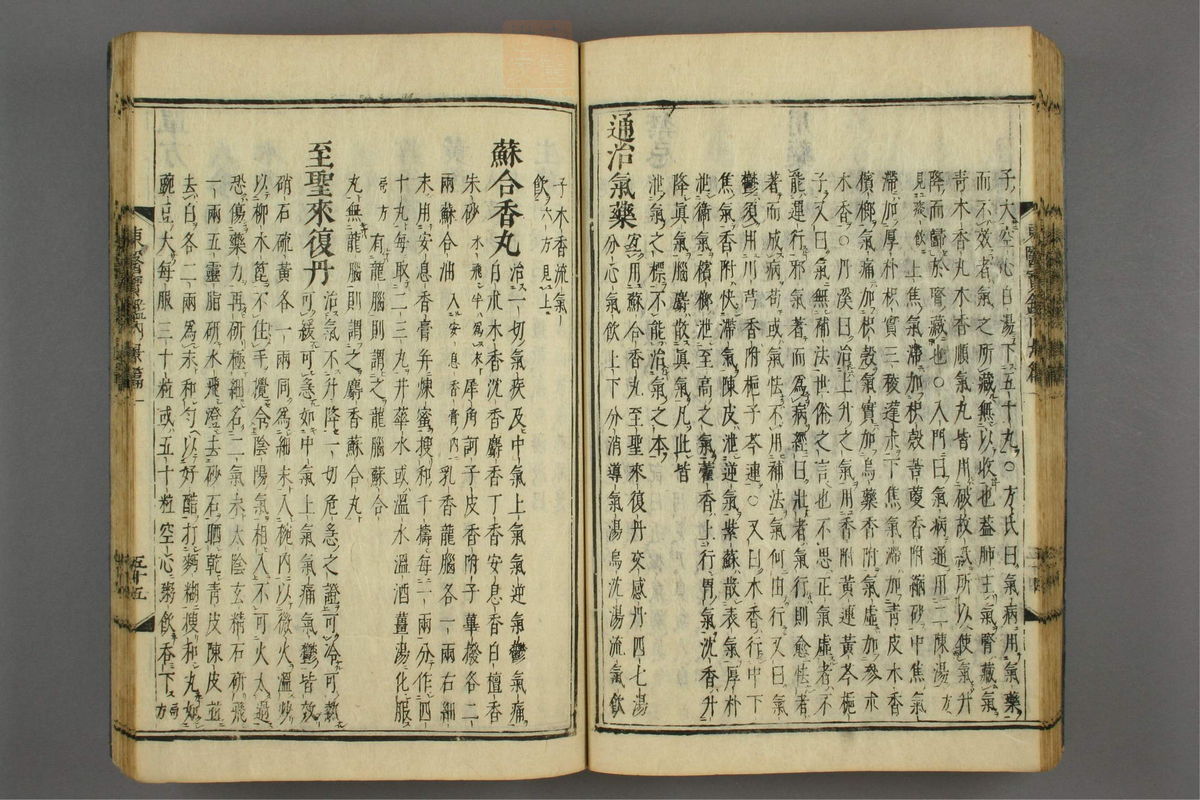 子大空心白湯下五十丸○方氏曰氣病用氣藥
而不效者氣之所藏無以收也蓋肺主氣腎藏氣
青木香丸木香順氣丸皆用破故紙所以使氣升
降而歸於腎藏也○入門曰氣病通用二陳湯方
見痰飮上焦氣滯加枳殼香附縮砂中焦氣
滯加厚朴枳實三稜蓬朮下焦氣滯加靑皮木香
檳榔氣痛加枳殼氣實加烏藥香附氣虛加參朮
木香○丹溪曰治上升之氣用香附黃連黃芩梔
子又曰氣無補法世俗之言也不思正氣虛者不
能運行邪氣著而爲病經曰壯者氣行則愈怯者
著而成病苟或氣怯不用補法氣何由行又曰氣
鬱須用川芎香附梔子芩連○又曰木香行中下
焦氣香附快滯氣陳皮泄逆氣紫蘇散表氣厚朴
泄衛氣檳榔泄至高之氣藿香上行胃氣沈香升
降眞氣腦麝散眞氣凡此皆
泄氣之標不能治氣之本
通治氣藥 宜用蘇合香丸至聖來復丹交感丹四七湯
分心氣飮上下分消導氣湯烏沈湯流氣飮
子木香流氣
飮六方見上
蘇合香丸 治一切氣疾及中氣上氣氣逆氣鬱氣痛
白朮木香沈香麝香丁香安息香白檀香
朱砂水飛半爲衣犀角訶子皮香附子蓽撥各二
兩蘇合油入安息香膏內乳香龍腦各一兩右細
末用安息香膏幷煉蜜搜和千擣每一兩分作四
十丸每取二三丸井華水或溫水溫酒薑湯化服
局方 有龍腦則謂之龍腦蘇合
丸無龍腦則謂之麝香蘇合丸
至聖來復丹 治氣不升降一切危急之證可冷可熱
可緩可急如中氣上氣氣痛氣鬱皆效
硝石硫黃各一兩同爲細末入椀內以微火溫炒
以柳木篦不住手攪令陰陽氣相入不可火太過
恐傷藥力再研極細名二氣末太陰玄精石研飛
一兩五靈脂研水飛澄去砂石晒乾靑皮陳皮並
去白各二兩爲末和勻以好醋打麪糊搜和丸如
豌豆大每服三十粒或五十粒空心粥飮呑下局方
五十五